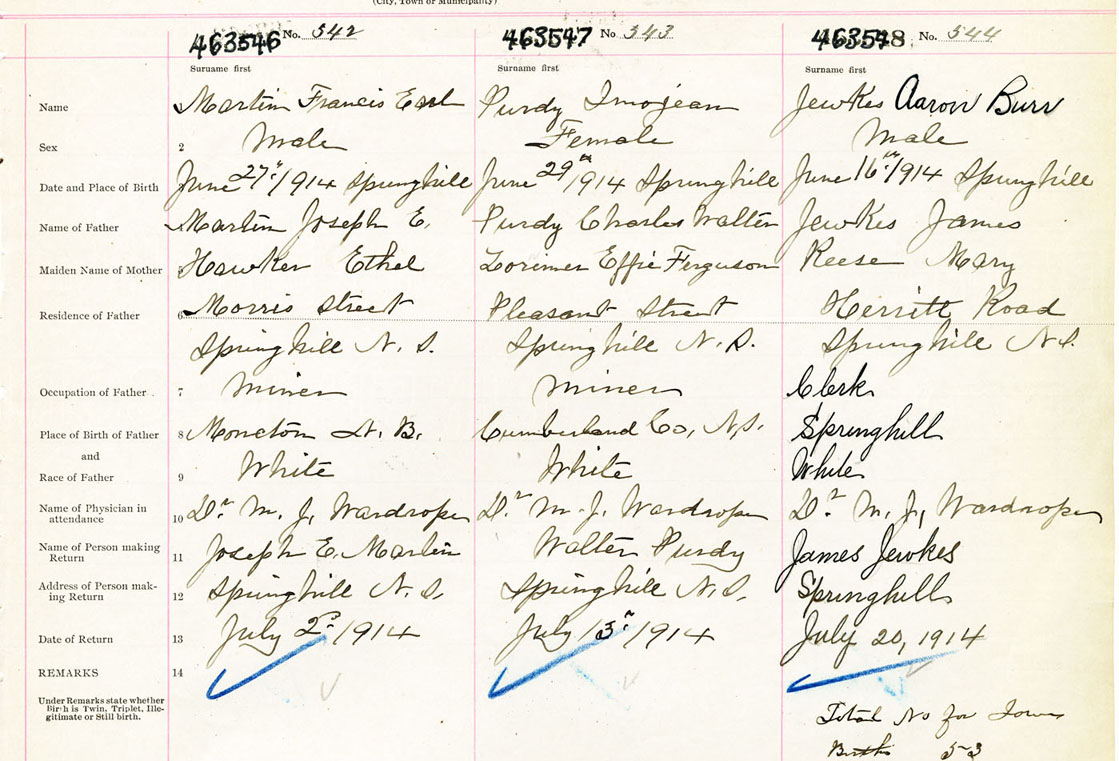 (City, Town or Municipality)
463546 No. 542 463547 No 543 463548 No. 544
Surname first Surname first Surname first
Name Martin Francis Earl Purdy Imojean Jewkes Aaron Burr
Sex 2 Male Female Male
Date and Place of Birth June 27th/1914 Springhill June 29th/1914 Springhill June 16th/1914 Springhill
Name of Father Martin Joseph E. Purdy Charles Walter Jewkes James
Maiden Name of Mother Hawker Ethel Lorimer Effie Ferguson Reese Mary
Residence of Father 6 Morris Street Pleasant Street Herritt Road
Springhill N.S. Springhill N.S. Springhill N.S.
Occupation of Father 7 Miner Miner Clerk
Place of Birth of Father 8 Moncton N.B. Cumberland Co, N.S. Springhill
and
Race of Father 9 White White White
Name of Physician in
attendance 10 Dr. M. J. Wardroper Dr M. J. Wardroper Dr. M. J. Wardroper
Name of Person making
Return 11 Joseph E. Martin Walter Purdy James Jewkes
Address of Person mak-
ing Return 12 Springhill N.S. Springhill N.S. Springhill
Date of Return 13 July 2d/1914 July /1914 July 20, 1914
REMARKS 14
Under Remarks state whether
Birth is Twin, Triplet, Ille-
gitimate or Still birth.
Total No for Town
Births 53